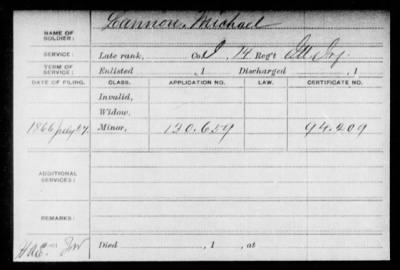 NAME OF SOLDIER: Cannon, Michael
SERVICE: Late rank, Co. I, 14 Reg't Ill. Inf.
TERM OF SERVICE: Enlisted , 1 Discharged , 1
DATE OF FILING. CLASS. APPLICATION NO. LAW. CERTIFICATE NO.
Invalid,
Widow,
1866 July 27 Minor, 130.659 94.209
ADDITIONAL SERVICES:
REMARKS:
Died , 1 , at